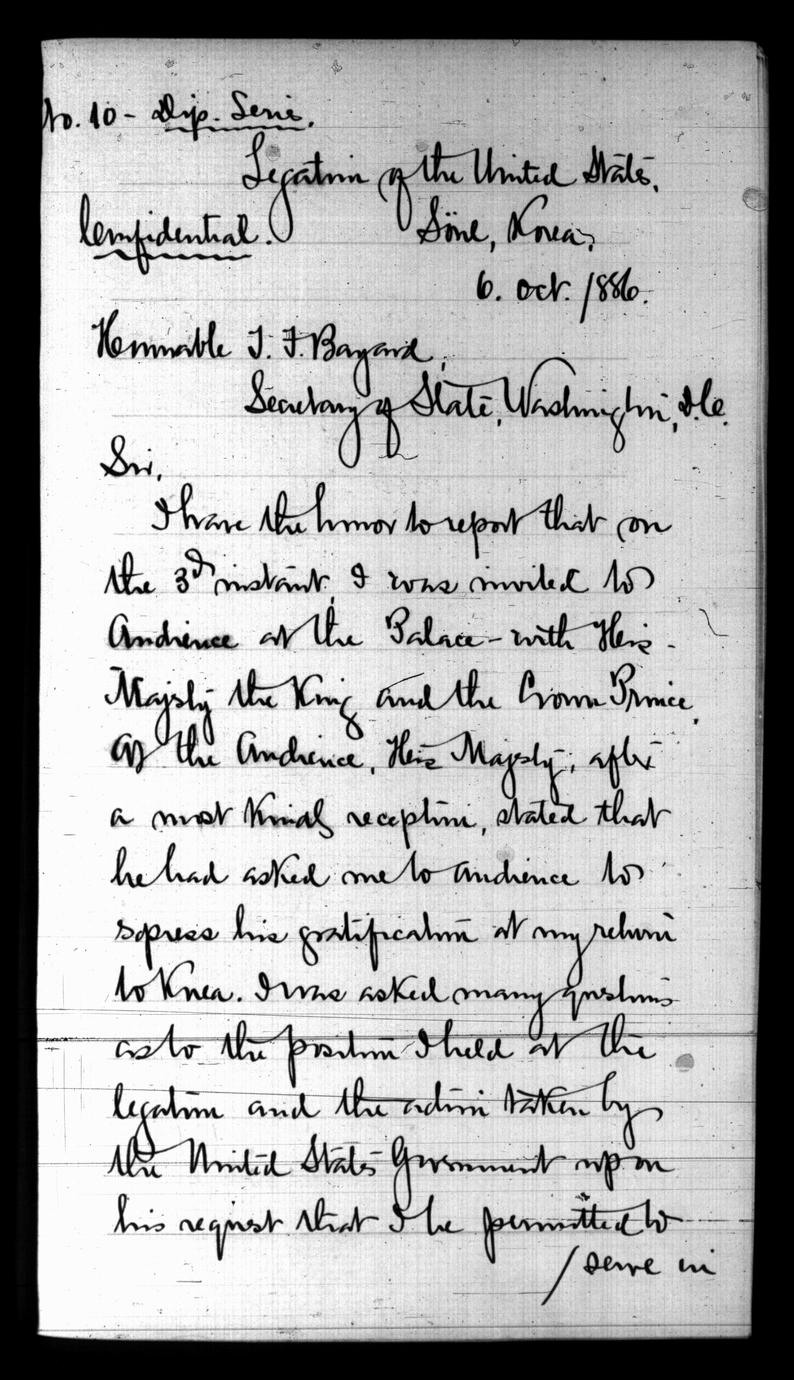 No. 10 - Dip. Series.
Legation of the United States,
Confidential. Söul, Korea,
6. Oct. 1886.
Honorable T. F. Bayard,
Secretary of State, Washington, D.C.
Sir,
I have the honor to report that on
the 3d instant, I was invited to
Audience at the Palace - with His
Majesty the King and the Crown Prince.
At the Audience, His Majesty, after
a most kindly reception, stated that
he had asked me to audience to
express his gratification at my return
to Korea. I was asked many questions
as to the position I held at the
legation and the action taken by
the United States Government upon
his request that I be permitted to
/ serve in